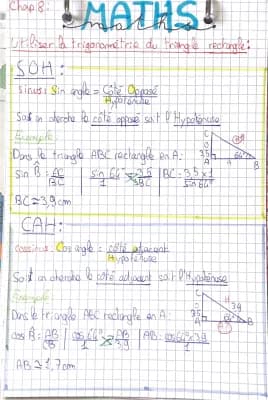 Chap 8:
MATHS
maths
Utiliser la trigonométrie du triangle rectangle:
SOH:
sinus: Sin angle = Côté Opposé
Hypoténuse
Soit on cherche le côté opposé soit l'Hypoténuse
Exemple:
Dans le triangle ABC rectangle en A:
sin B̂: AC | sin 64° 3,5 | BC: 3,5 x 1
BC | 1 BC | sin 64°
BC ≃ 3,9 cm
C
O
3,5
A 64° B
CAH:
cosinus: Cos angle = côté adjacent
Hypoténuse
Soit on cherche le côté adjacent soit l'Hypoténuse
Exemple
Dans le triangle ABC rectangle en A:
cos B̂: AB | cos 64° AB | AB: cos 64° x 3,9
CB | 1 3,9 | 1
AB ≃ 1,7 cm
C
H
3,9
3,5
A 64° B